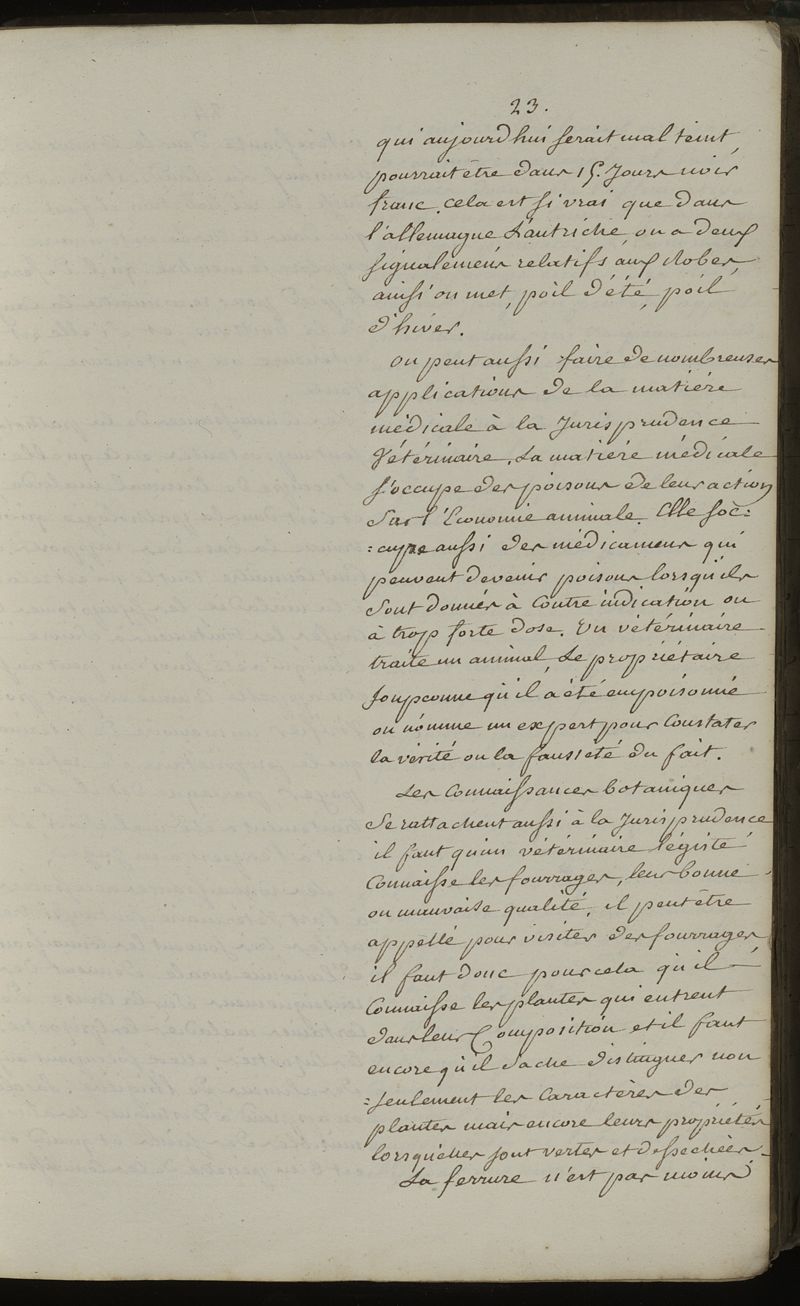 23.
qui aujourd'hui serait mal teint,
pourrait être dans 15. Jours noir
franc. cela est si vrai que dans
l'allemagne L'autriche, on a deux
signalemens relatifs aux Robes,
ainsi on met, poil d'été, poil
d'hiver.
on peut aussi faire de nombreuses
applications de la matière
médicale à la Jurisprudence
Vétérinaire, La matière médicale
s'occupe des poisons de leur action
Sur l'Economie animale. Elle soc:
=cupe aussi des médicamens qui
peuvent devenir poisons lorsqu'ils
Sont donnés à Contre indication ou
à trop forte dose. Un vétérinaire
traite un animal, Le propriétaire
soupconne qu'il a été empoisonné
on nomme un expert pour Constater
la vérité ou la fausseté du fait.
Les Connaissances botaniques
Se rattachent aussi à la Jurisprudence
il faut qu'un vétérinaire légiste
Connaisse les fourrages, leur bonne
ou mauvaise qualité, il peut être
appellé pour visiter des fourrages,
il faut donc pour cela qu'il
Connaisse les plantes qui entrent
dans leur Composition et il faut
encore qu'il Sache distinguer non
=seulement les Caractères des
plantes mais encore leurs propriétés
lorsquelles sont vertes et dessechées.
La ferrure n'est pas moins